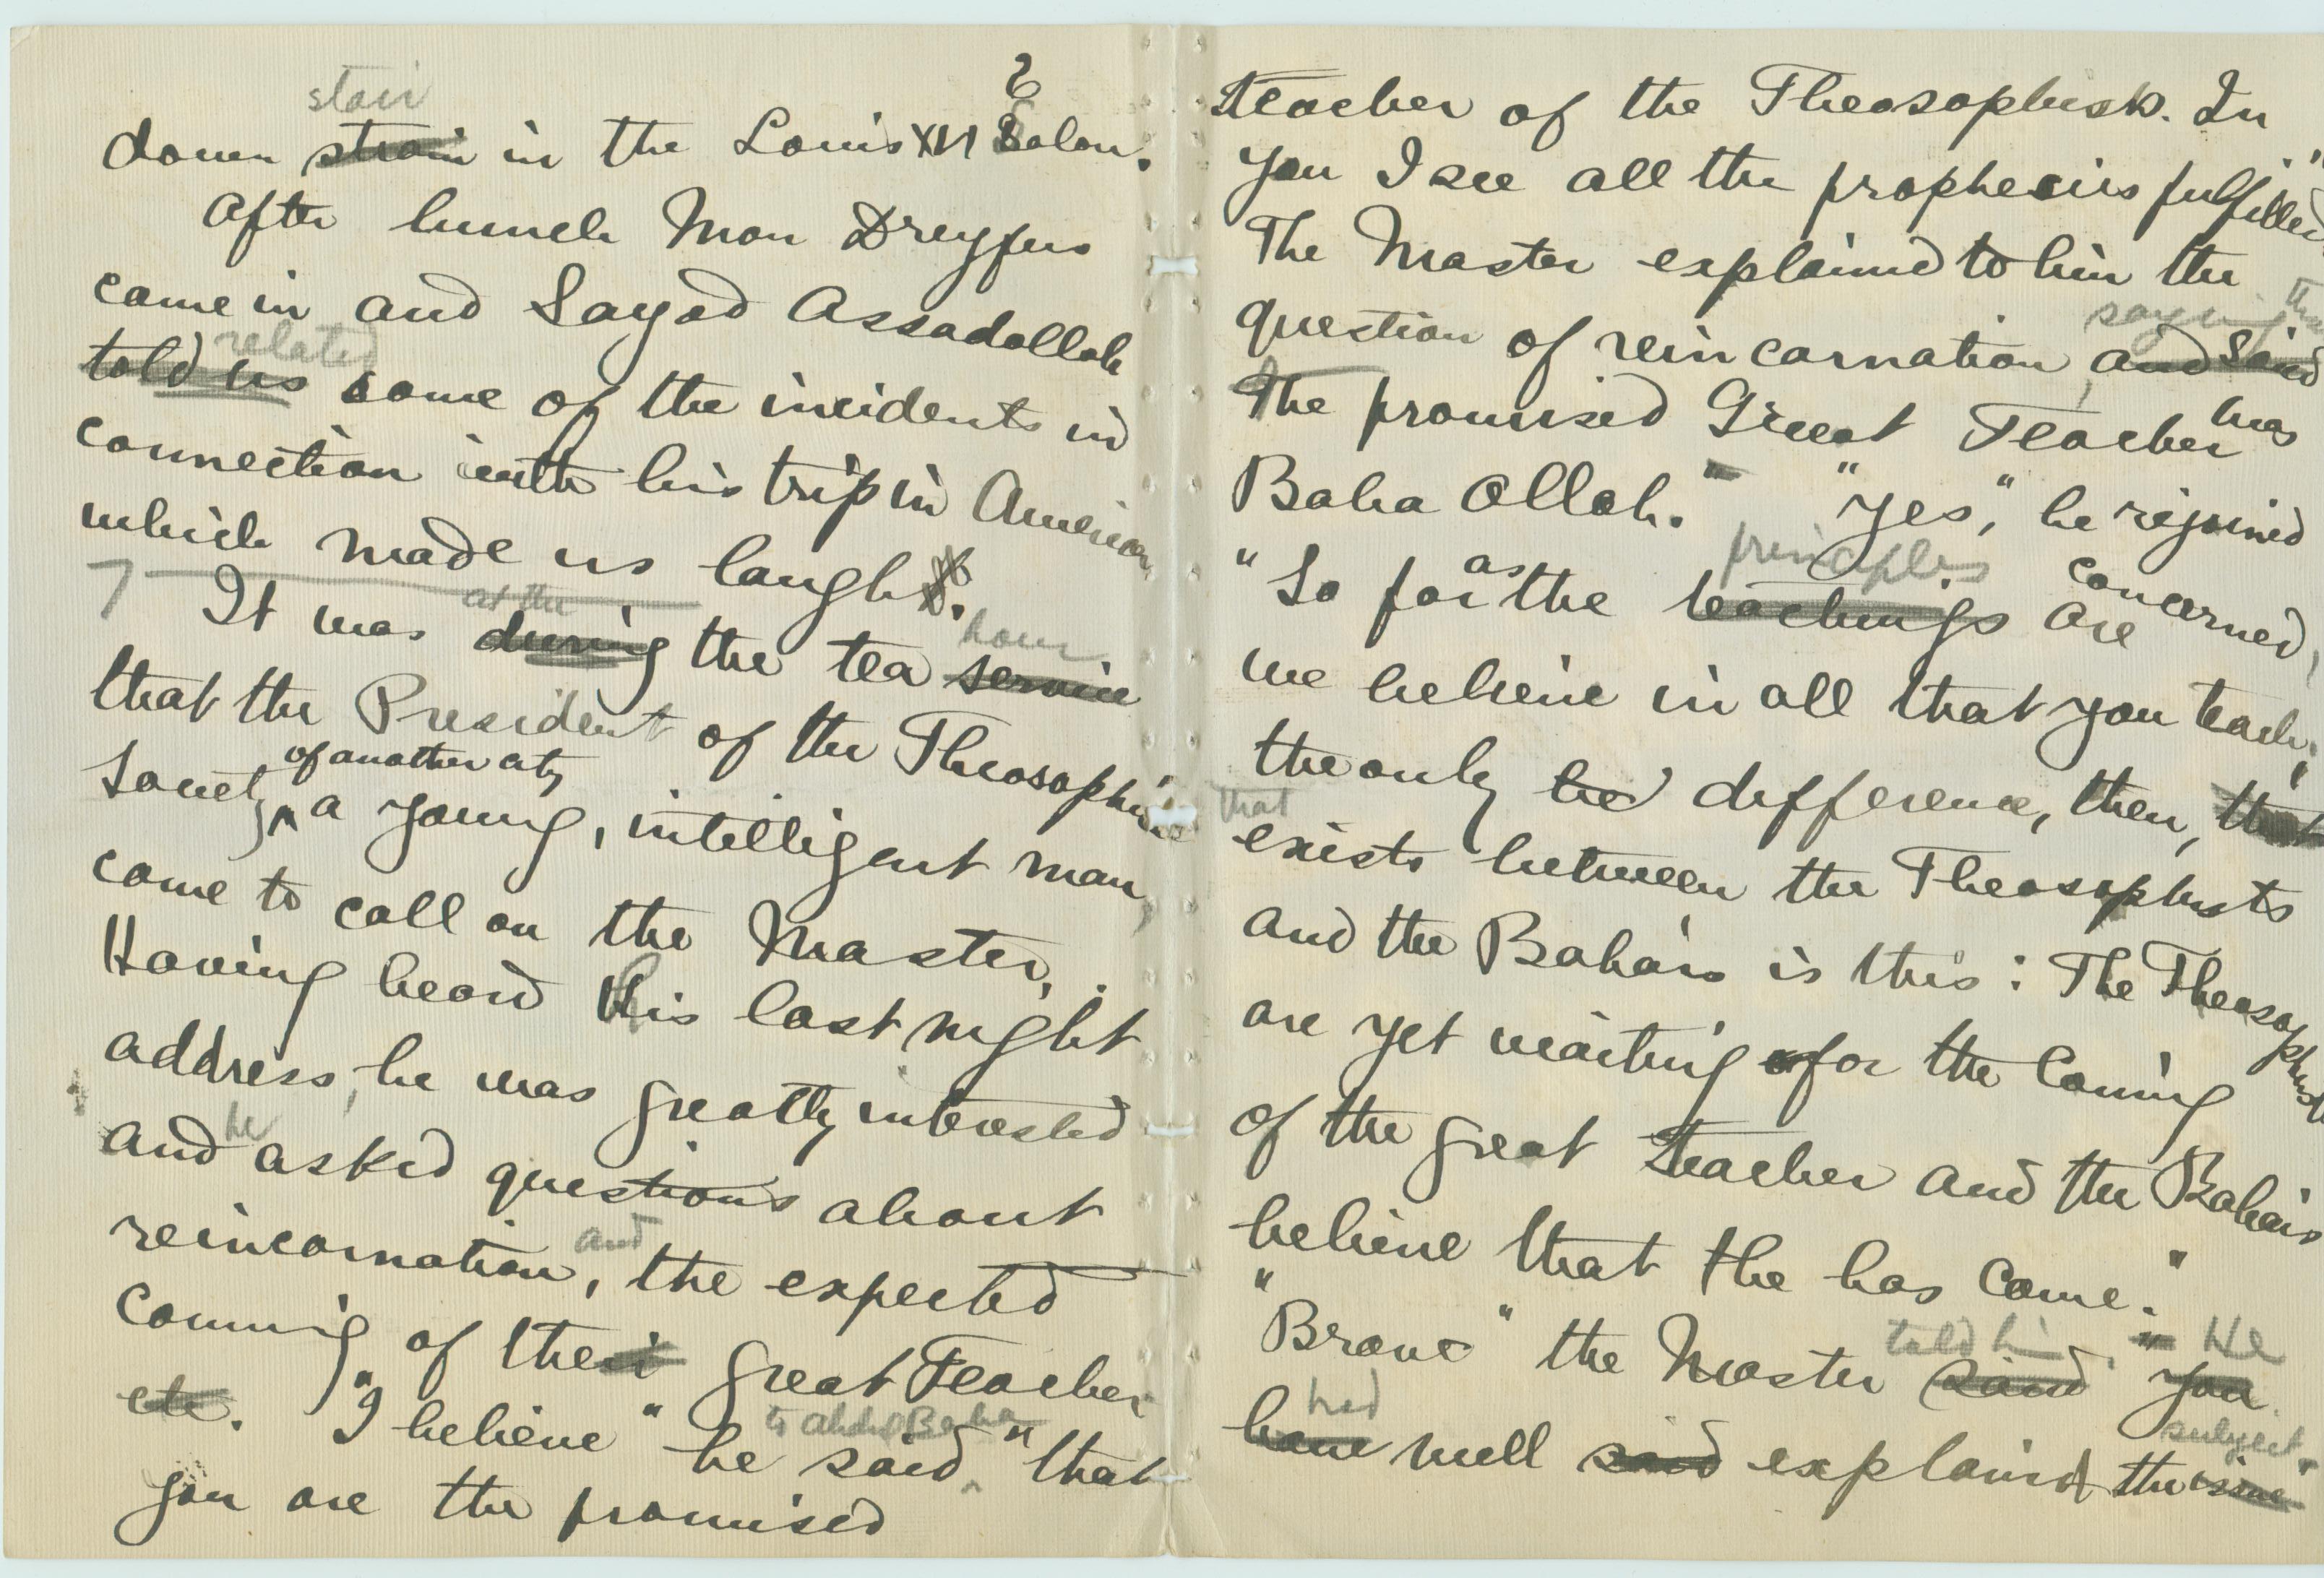 6
stair
down strain in the Louis XVI Salon.
After lunch Mon Dreyfus
came in and Sayad Assadollah
related
told us some of the incidents in
connection with his trip in American
which made us laugh.
at the hour
It was during the tea service
that the President of the Theosophical
of another city
Society, a young, intelligent man,
came to call on the Master.
Having heard His last night
address, he was greatly interested
he
and asked questions about
and
reincarnation, the expected
coming of their great Teacher
etc. "I believe" he said "that
to Abdul Baha
you are the promised
teacher of the Theosophists. In
you I see all the prophecies fulfilled"
The Master explained to him the
saying that
question of reincarnation, and said
The promised Great Teacher was
Baha Ollah." "Yes," he rejoined
principles
"So far as the teachings are concerned,
we believe in all that you teach;
the only be difference, then, that
that
exists between the Theosophists
and the Bahais is this: The Theosophists
are yet waiting for the Coming
of the great Teacher and the Bahais
believe that He has come."
told him He
"Bravo" the Master said "You
had subject.
have well said explained the issue